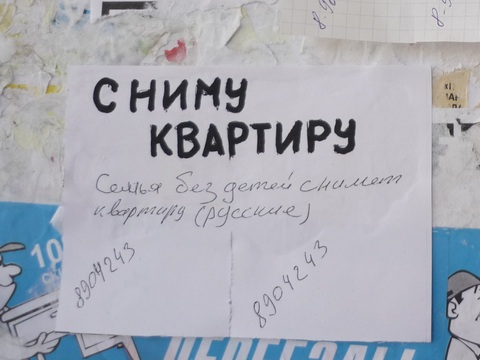 СНИМУ
КВАРТИРУ
Семья без детей снимет
квартиру (русские)
8904243
8904243
10
ПЕРЕЕЗДЫ